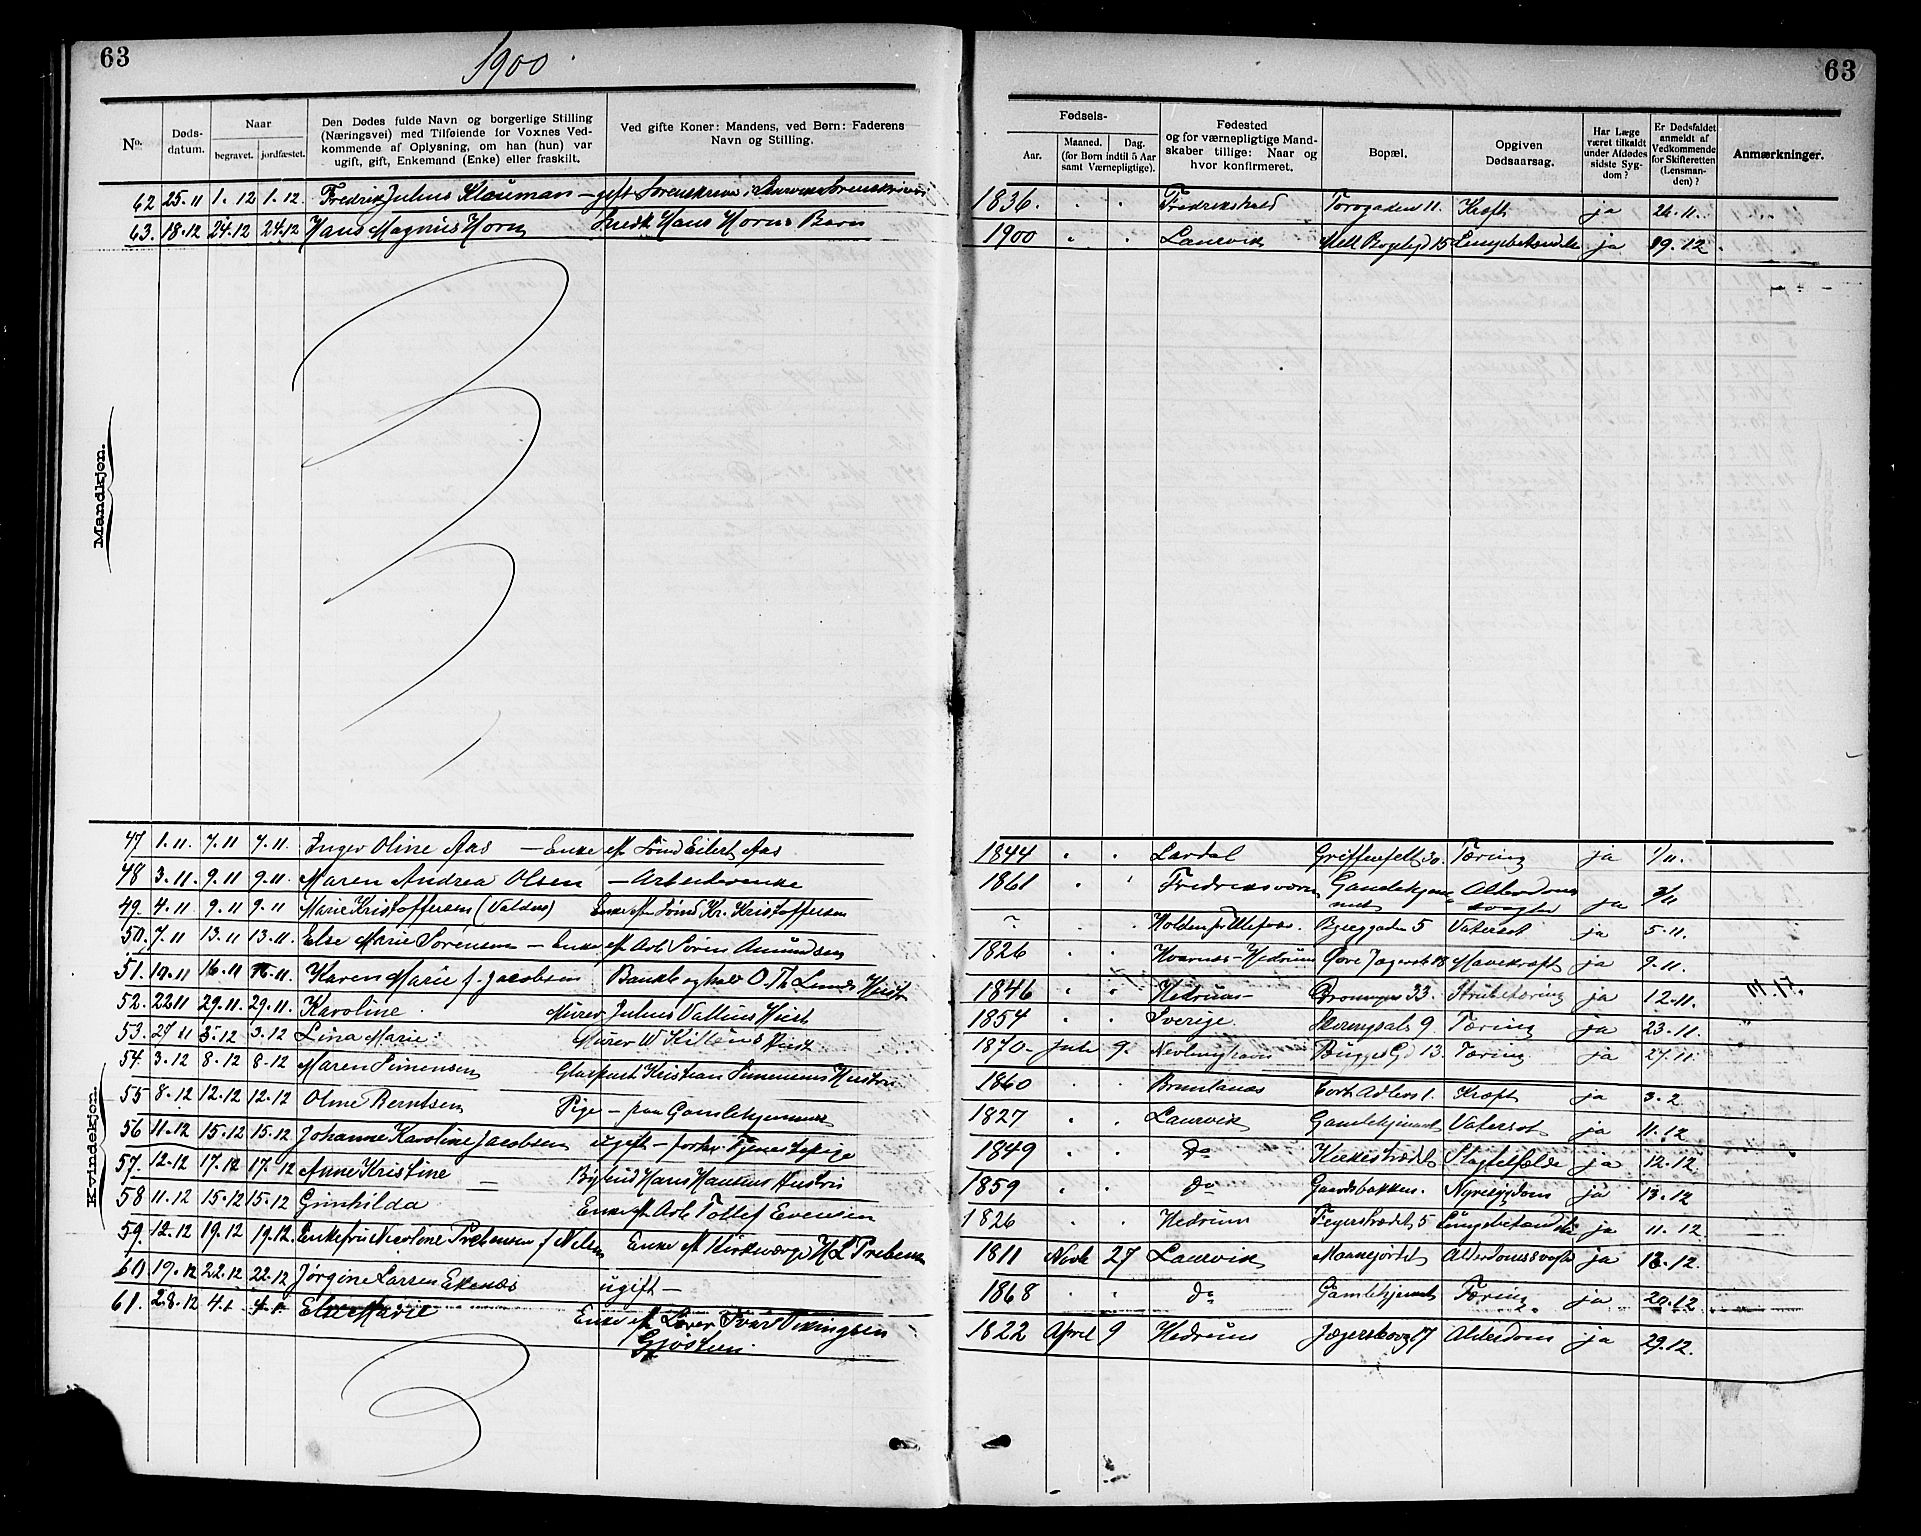 63
1900.
No.
Døds-datum.
Naar
begravet. jordfæstet.
Den Dødes fulde Navn og borgerlige Stilling
(Næringsvei) med Tilføiende for Voxnes Ved-
kommende af Oplysning, om han (hun) var
ugift, gift, Enkemand (Enke) eller fraskilt.
Ved gifte Koner: Mandens, ved Børn: Faderens
Navn og Stilling.
Mandkjøn.
62 25.11 1.12 1.12 Fredrik Julius Klauman – gift Sorenskriver i
63. 18.12 24.12 24.12 Hans Magnus Horn Snedk Hans Horns Barn
Kvindekjøn.
47 1.11. 7.11 7.11. Inger Oline Aas – Enke ef Eilert Aas
48 3.11. 9.11 9.11. Maren Andrea Olsen – Arbeiderenke
49. 4.11 9.11 9.11 Marie Kristoffersen Enke efter Kr. Kristoffersen
50. 7.11 13.11 13.11. Else Marie Sørensen – Enke ef Arb Søren Amundsen
51. 10.11 16.11 16.11. Karen Marie f. Jacobsen O. Th Lunds Hustr
52. 22.11 29.11. 29.11. Karoline Murer Julius Hustr
53. 27.11 3.12 3.12 Lina Marie Murer W Hustr
54. 3.12 8.12 8.12 Maren Simensen Kristian Simensens Hustru
55 8.12 12.12 12.12 Oline Berntsen Pige – paa Gamlehjemmet
56 11.12 15.12 15.12 Johanne Karoline Jacobsen ugift – Tjenestepige
57. 12.12 17.12 17.12 Anne Kristine – Bybud Hans Hansens Hustru
58 11.12 15.12 15.12 Gunhilda Enke ef Arb Tollef Evensen
59. 12.12 19.12 19.12. Enkefru Nicoline Prebensen f Enke ef H L Prebensen
60 19.12 22.12 22.12 Jørgine Larsen Ekenæs ugift –
61. 28.12 4.1 4.1 Else Marie Enke ef Iver Vikingsen
63
Fødsels-
Aar.
Maaned. Dag.
(for Børn indtil 5 Aar
samt Værnepligtige).
Fødested
og for værnepligtige Mand-
skaber tillige: Naar og
hvor konfirmeret.
Bopæl.
Opgiven
Dødsaarsag.
Har Læge
været tilkaldt
under Afdødes
sidste Syg-
dom?
Er Dødsfaldet
anmeldt af
Vedkommende
for Skifteretten
(Lensman-
den)?
Anmærkninger.
1836. . . Fredrikshald 11. Kræft ja 26.11.
1900 . . Laurvik 15 Lungebetændelse ja 19.12
1844 . . Lardal Griffenfelt 30. Tæring ja 1/11.
1861 . . Fredriksværn Gamlehjemmet Alderdoms
svaghed ja 3/11
~ Holden pr Ulefos. Bjerggaden 5 Vatersot ja 5.11.
1826 . . Hedrum Øvre 18 Mavekræft ja 9.11.
1846 . . Hedrum Dronningens 33. Strubetæring ja 12.11.
1854 . . Sverige. 9. Tæring ja 23.11.
1870 Juli 9. Nevlunghavn Bugges G. 13. Tæring ja 27.11.
1860 . . Brunlanæs Cort Adlers 1. Kræft ja 3.2
1827 . . Laurvik Gamlehjemmet Vatersot ja 11.12
1849 . . do Kirkestrædet Slagtilfælde ja 12.12
1859 . . do Gaardsbakken. Nyresygdom ja 13.12
1826 . . Hedrum Feyerstrædet 5 Lungebetændelse ja 11.12
1811 Novb 27 Laurvik Maanejordet Alderdomssvagh ja 13.12.
1868 . . do Gamlehjemmet Tæring ja 20.12
1822 April 9 Hedrum Jægersborg 17 Alderdom ja 29.12.